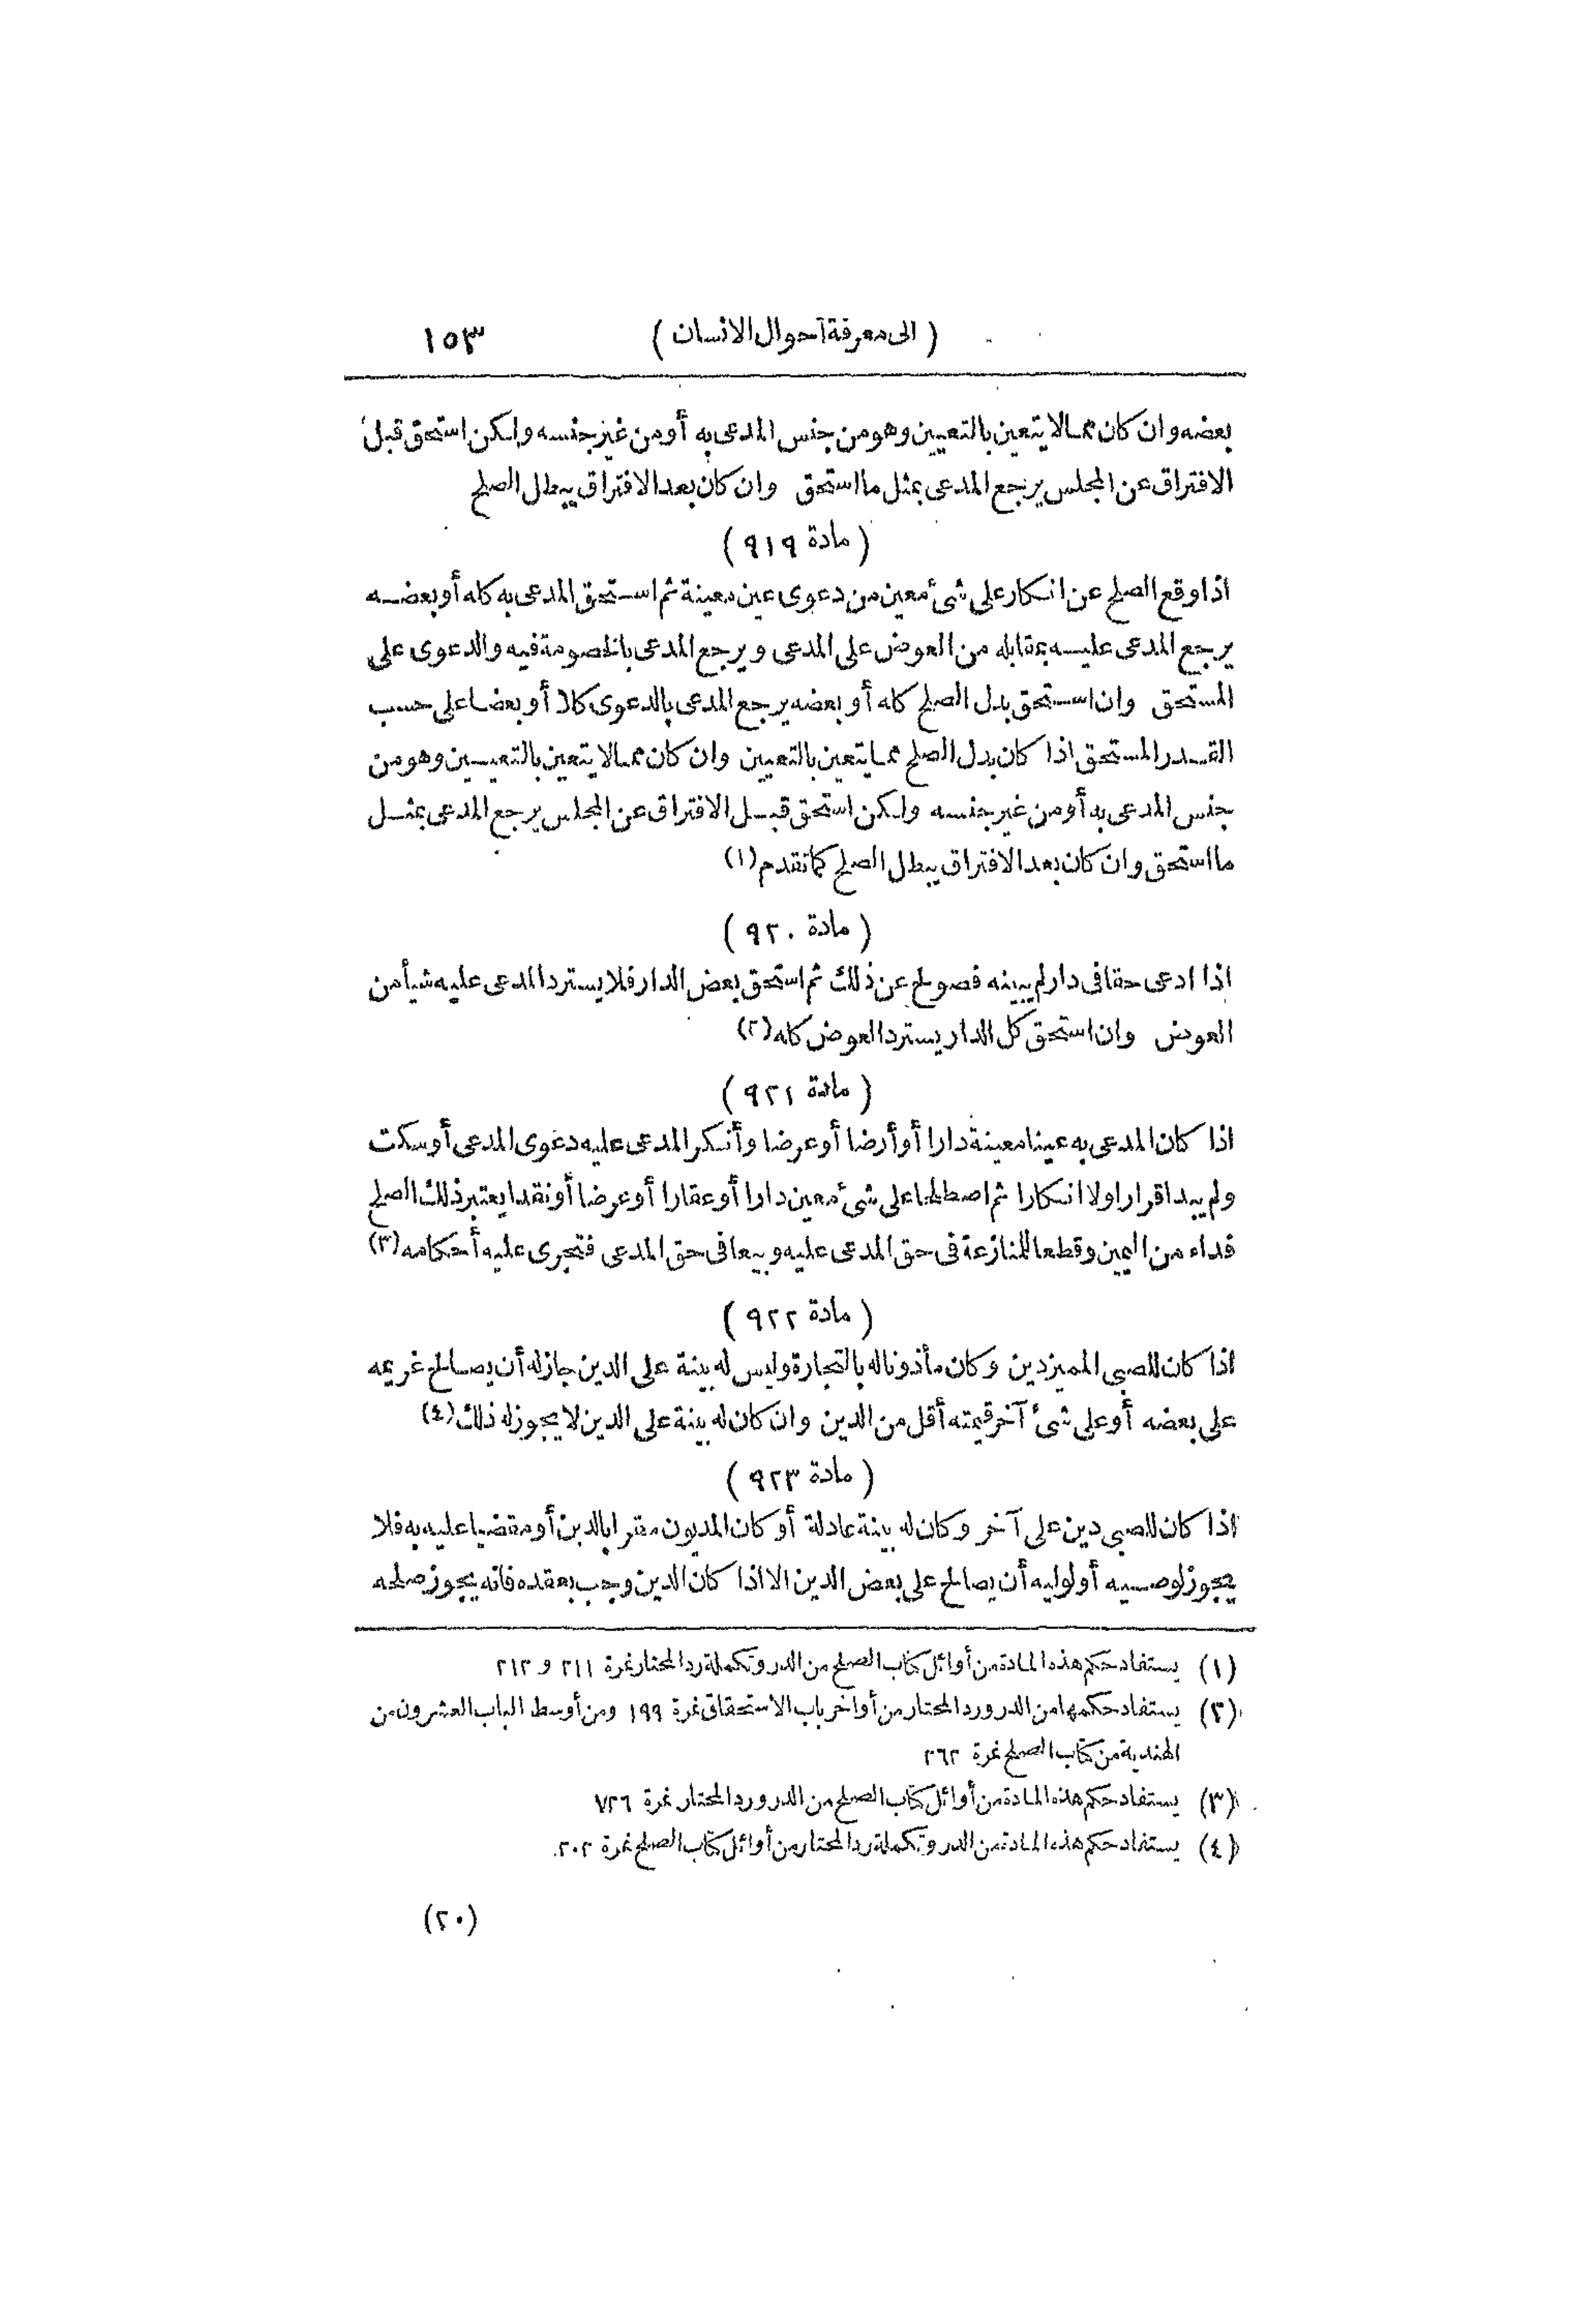 ( الى معرفة أحوال الانسان ) ١٥٣
بعضه وان كان مما لا يتعين بالتعيين وهو من جنس المدعى به أو من غير جنسه ولكن استحق قبل
الافتراق عن المجلس يرجع المدعى بمثل ما استحق وان كان بعد الافتراق يبطل الصلح
( مادة ٩١٩ )
اذا وقع الصلح عن انكار على شئ معين من دعوى عين معينة ثم استحق المدعى به كله أو بعضه
يرجع المدعى عليه بمقابله من العوض على المدعى ويرجع المدعى بالخصومة فيه والدعوى على
المستحق وان استحق بدل الصلح كله أو بعضه يرجع المدعى بالدعوى كلا أو بعضا على حسب
القدر المستحق اذا كان بدل الصلح مما يتعين بالتعيين وان كان مما لا يتعين بالتعيين وهو من
جنس المدعى به أو من غير جنسه ولكن استحق قبل الافتراق عن المجلس يرجع المدعى بمثل
ما استحق وان كان بعد الافتراق يبطل الصلح كما تقدم (١)
( مادة ٩٢٠ )
اذا ادعى حقا فى دار لم يبينه فصولح عن ذلك ثم استحق بعض الدار فلا يسترد المدعى عليه شيأ من
العوض وان استحق كل الدار يسترد العوض كله (٢)
( مادة ٩٢١ )
اذا كان المدعى به عينا معينة دارا أو أرضا أو عرضا وأنكر المدعى عليه دعوى المدعى أو سكت
ولم يبد اقرارا ولا انكارا ثم اصطلحا على شئ معين دارا أو عقارا أو عرضا أو نقدا يعتبر ذلك الصلح
فداء من اليمين وقطعا للمنازعة فى حق المدعى عليه وبيعا فى حق المدعى فتجرى عليه أحكامه (٣)
( مادة ٩٢٢ )
اذا كان للصبى المميز دين وكان مأذونا له بالتجارة وليس له بينة على الدين جاز له أن يصالح غريمه
على بعضه أو على شئ آخر قيمته أقل من الدين وان كان له بينة على الدين لا يجوز له ذلك (٤)
( مادة ٩٢٣ )
اذا كان للصبى دين على آخر وكان له بينة عادلة أو كان المديون مقرا بالدين أو مقضيا عليه به فلا
يجوز لوصيه أو لوليه أن يصالح على بعض الدين الا اذا كان الدين وجب بعقده فانه يجوز صلحه
(١) يستفاد حكم هذه المادة من أوائل كتاب الصلح من الدر وتكملة رد المحتار نمرة ٢١١ و ٢١٢
(٢) يستفاد حكمها من الدر ورد المحتار من أواخر باب الاستحقاق نمرة ١٩٩ ومن أوسط الباب العشرون من
الهندية من كتاب الصلح نمرة ٢٦٢
(٣) يستفاد حكم هذه المادة من أوائل كتاب الصلح من الدر ورد المحتار نمرة ٧٢٦
(٤) يستفاد حكم هذه المادة من الدر وتكملة رد المحتار من أوائل كتاب الصلح نمرة ٢٠٢
(٢٠)